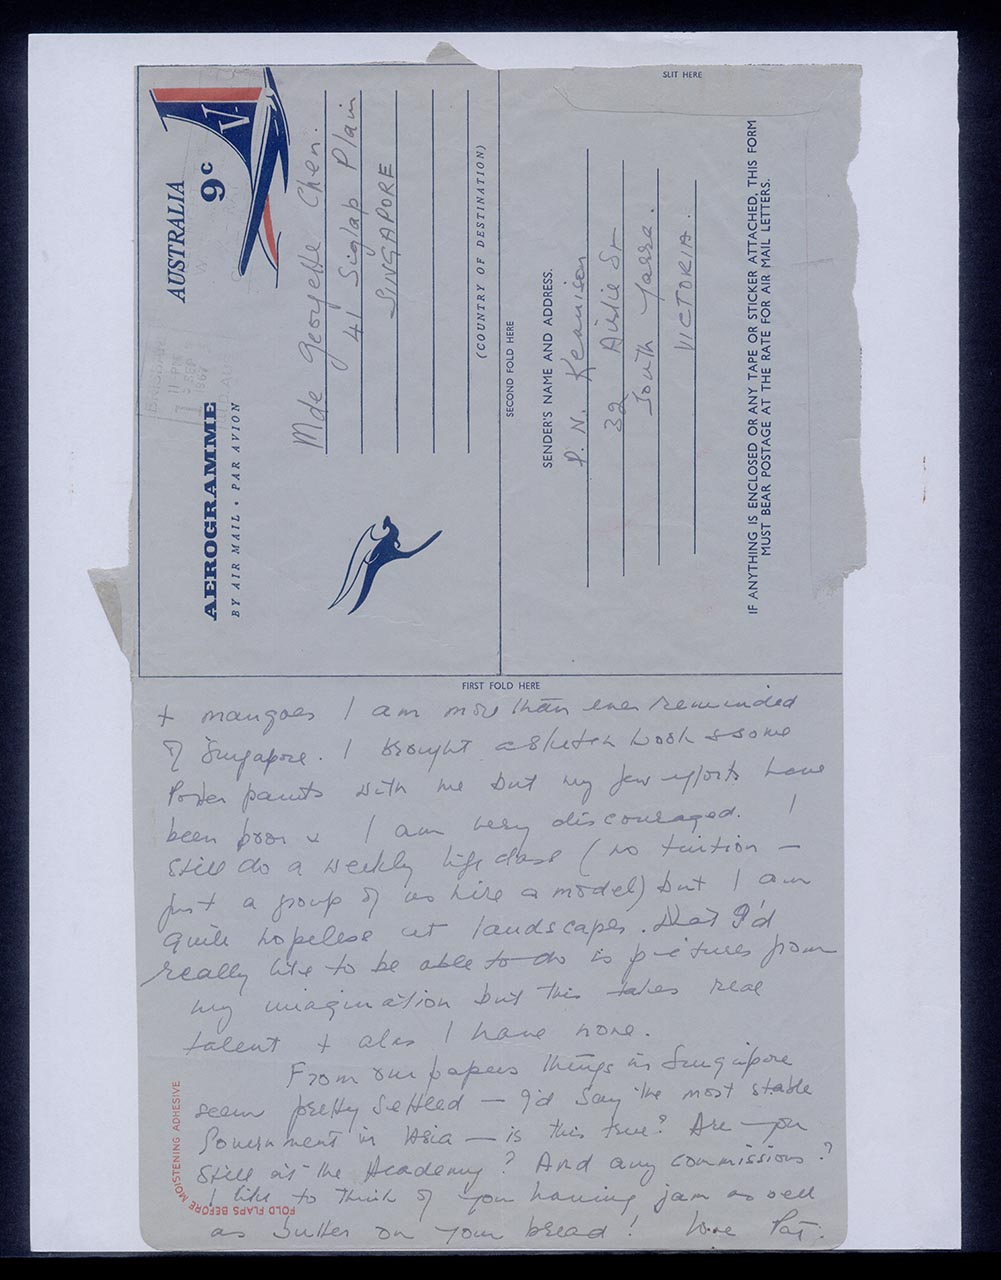 AUSTRALIA
9c
V
AEROGRAMME
BY AIR MAIL • PAR AVION
BRISBAN
11 PM
SEP
1967
Mde Georgette Chen.
41 Siglap Plain
SINGAPORE
(COUNTRY OF DESTINATION)
SECOND FOLD HERE
SLIT HERE
SENDER'S NAME AND ADDRESS.
P. N. Kennison
32 Airlie St
South Yarra.
VICTORIA.
IF ANYTHING IS ENCLOSED OR ANY TAPE OR STICKER ATTACHED, THIS FORM
MUST BEAR POSTAGE AT THE RATE FOR AIR MAIL LETTERS.
FIRST FOLD HERE
+ mangoes I am more than ever reminded
of Singapore. I brought a sketch book & some
Poster paints with me but my few efforts have
been poor & I am very discouraged. I
still do a weekly life class (no tuition –
just a group of us hire a model) but I am
quite hopeless at landscapes. What I'd
really like to be able to do is pictures from
my imagination but this takes real
talent + alas I have none.
From our papers things in Singapore
seem pretty settled — I'd say the most stable
Government in Asia — is this true? Are you
still at the Academy? And any commissions?
I like to think of you having jam as well
as butter on your bread! Love Pat.
FOLD FLAPS BEFORE MOISTENING ADHESIVE